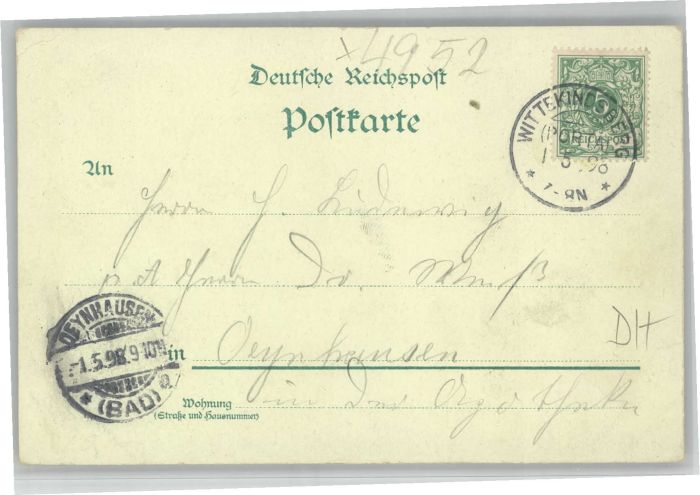 x4952
Deutsche Reichspost
Postkarte
5
REICHSPOST
WITTEKINDSBERG
(PORTA)
1 5 98
* 7-8N *
An
Herrn H. Ludewig
p. A Herrn Dr.
OEYNHAUSEN
1.5.98.9-10N
* (BAD)
in Oeynhausen
DH
in der Apotheke
Wohnung
(Straße und Hausnummer)